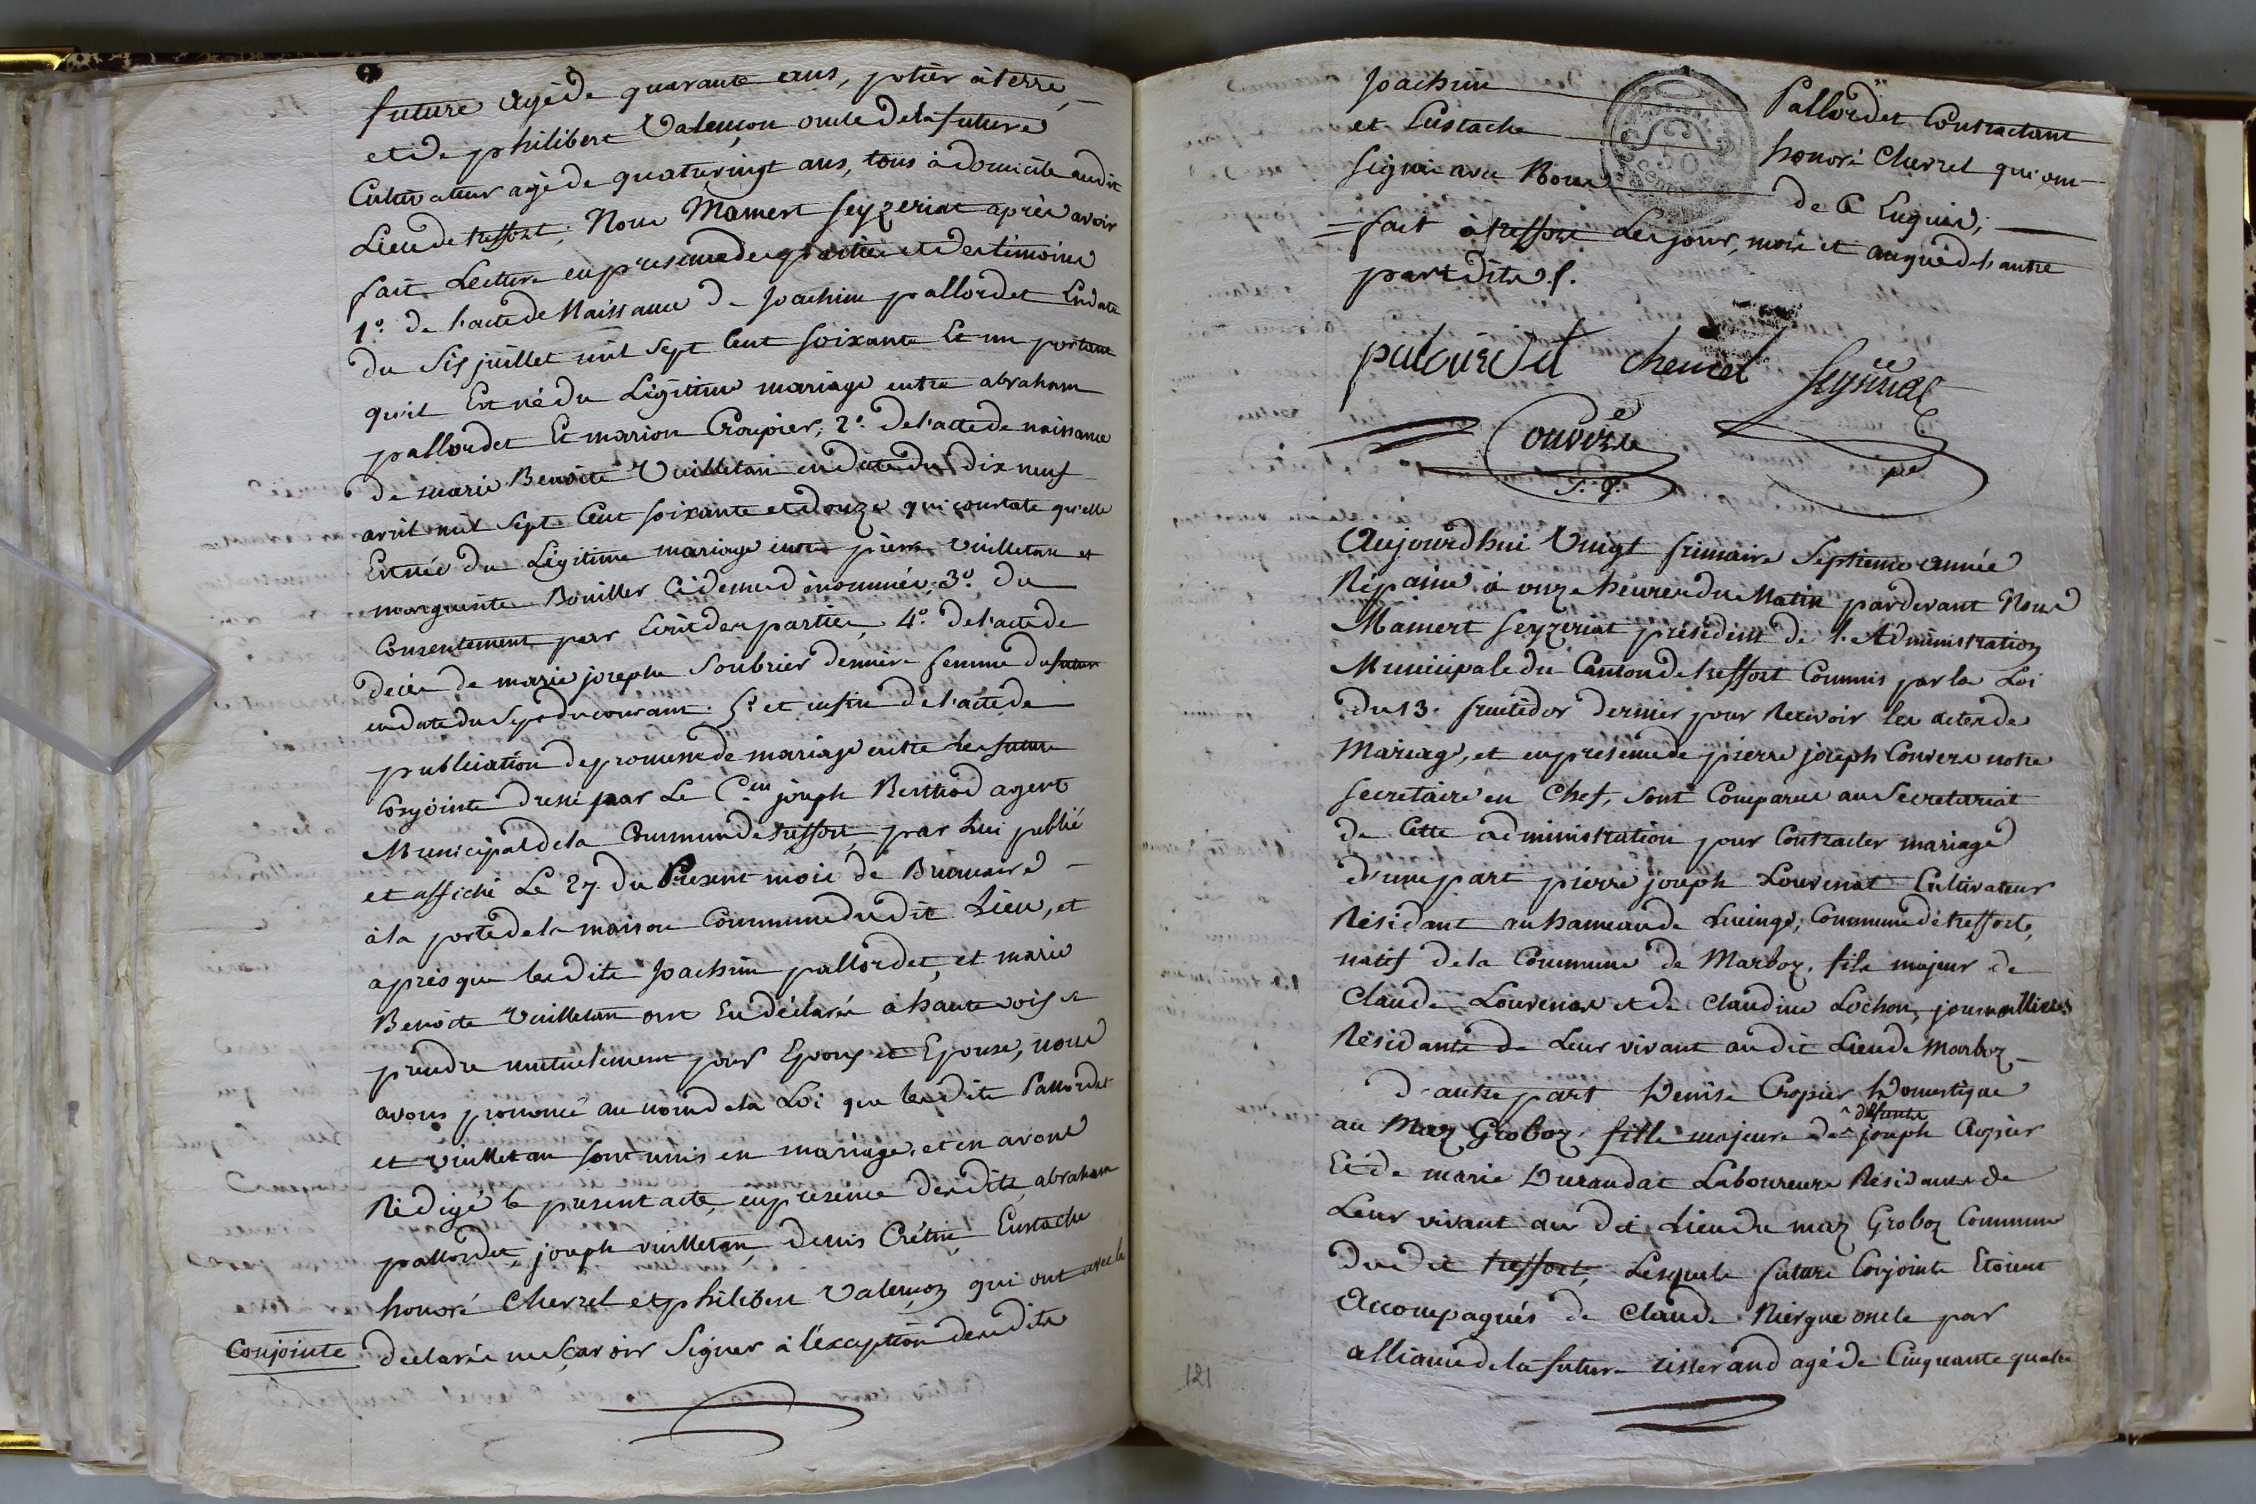 future agé de quarante ans, potier à terre,
et de philibert Valençon oncle de la future
Cultivateur agé de quatrevingt ans, tous à domicile audit
Lieu de treffort; Nous Mamert seyzeriat après avoir
fait Lecture en presence des parties et des temoins
1º. de l'acte de Naissance de Joachim pallordet En date
du Six juillet mil sept Cent soixante Et un portant
qu'il Est né du Légitime mariage entre abraham
pallordet Et marion Croupier; 2º. De l'acte de naissance
de marie Benoite Vuilletan en date du dix neuf
avril mil sept Cent soixante et douze qui constate qu'elle
Est née du Légitime mariage entre pierre vuilletan et
marguerite Bouiller Ci dessus dénommée; 3º. du
Consentement par Ecrit des parties, 4º. de l'acte de
decès de marie josephe Soubrier derniere femme du futur
en date du sept du courant. 5º. et enfin de l'acte de
publication de promesse de mariage entre les futurs
Conjoints dressé par Le C.en joseph Berthod agent
Municipal de la Commune de treffort, par Lui publié
et affiché Le 27. du Present mois de Brumaire
à la porte de la maison Commune dudit Lieu, et
après que lesdits Joachim pallordet, et marie
Benoite Vuilletan ont Eu déclaré à haute voix se
prendre mutuelement pour Epoux et Epouse, nous
avons prononcé au nom de la Loi que lesdits Pallordet
et vuilletan sont unis en mariage, et en avons
Rédigé le present acte, en presence desdits, abraham
pallordet, joseph vuilletan, denis Crétin, Eustache
honoré Chevrel et philibert Valençon qui ont avec la
Conjointe declaré ne sçavoir Signer à l'éxception desdits
Joachim Pallordet Contractant
et Eustache honoré Chevrel qui ont
signé avec Nous de Ce Enquis,
= fait à treffort Les jour, mois et an que d'autre
part dits ./.
palourdet chevrel Seyzeriat
Convers pdt
S. g.
Aujourdhui Vingt frimaire Septieme année
Répaine à onze heures du Matin pardevant Nous
Mamert seyzeriat président de l'Administration
Municipale du Canton de treffort Commis par la Loi
du 13. fructidor dernier pour Recevoir les actes de
Mariage, et en presence de pierre joseph Convers notre
secretaire en Chef, sont Comparus au Secretariat
de Cette administration pour Contracter mariage
d'une part pierre joseph Louvenat Cultivateur
Résidant au hameau de Lucinge, Commune de treffort,
natif de la Commune de Marboz, fils majeur de
Claude Louvenat et de Claudine Lochon, journalliers
Résidants de Leur vivant audit Lieu de Marboz
d'autre part Denise Cropier Domestique
au Maz Groboz, fille majeure de ^défunts^ joseph Cropier
Et de marie Durandat Laboureurs Résidants de
Leur vivant audit Lieu du maz Groboz Commune
dudit treffort, Lesquels futurs Conjoints Etoient
Accompagnés de Claude Niergue oncle par
alliance de la future tisserand agé de Cinquante quatre
121